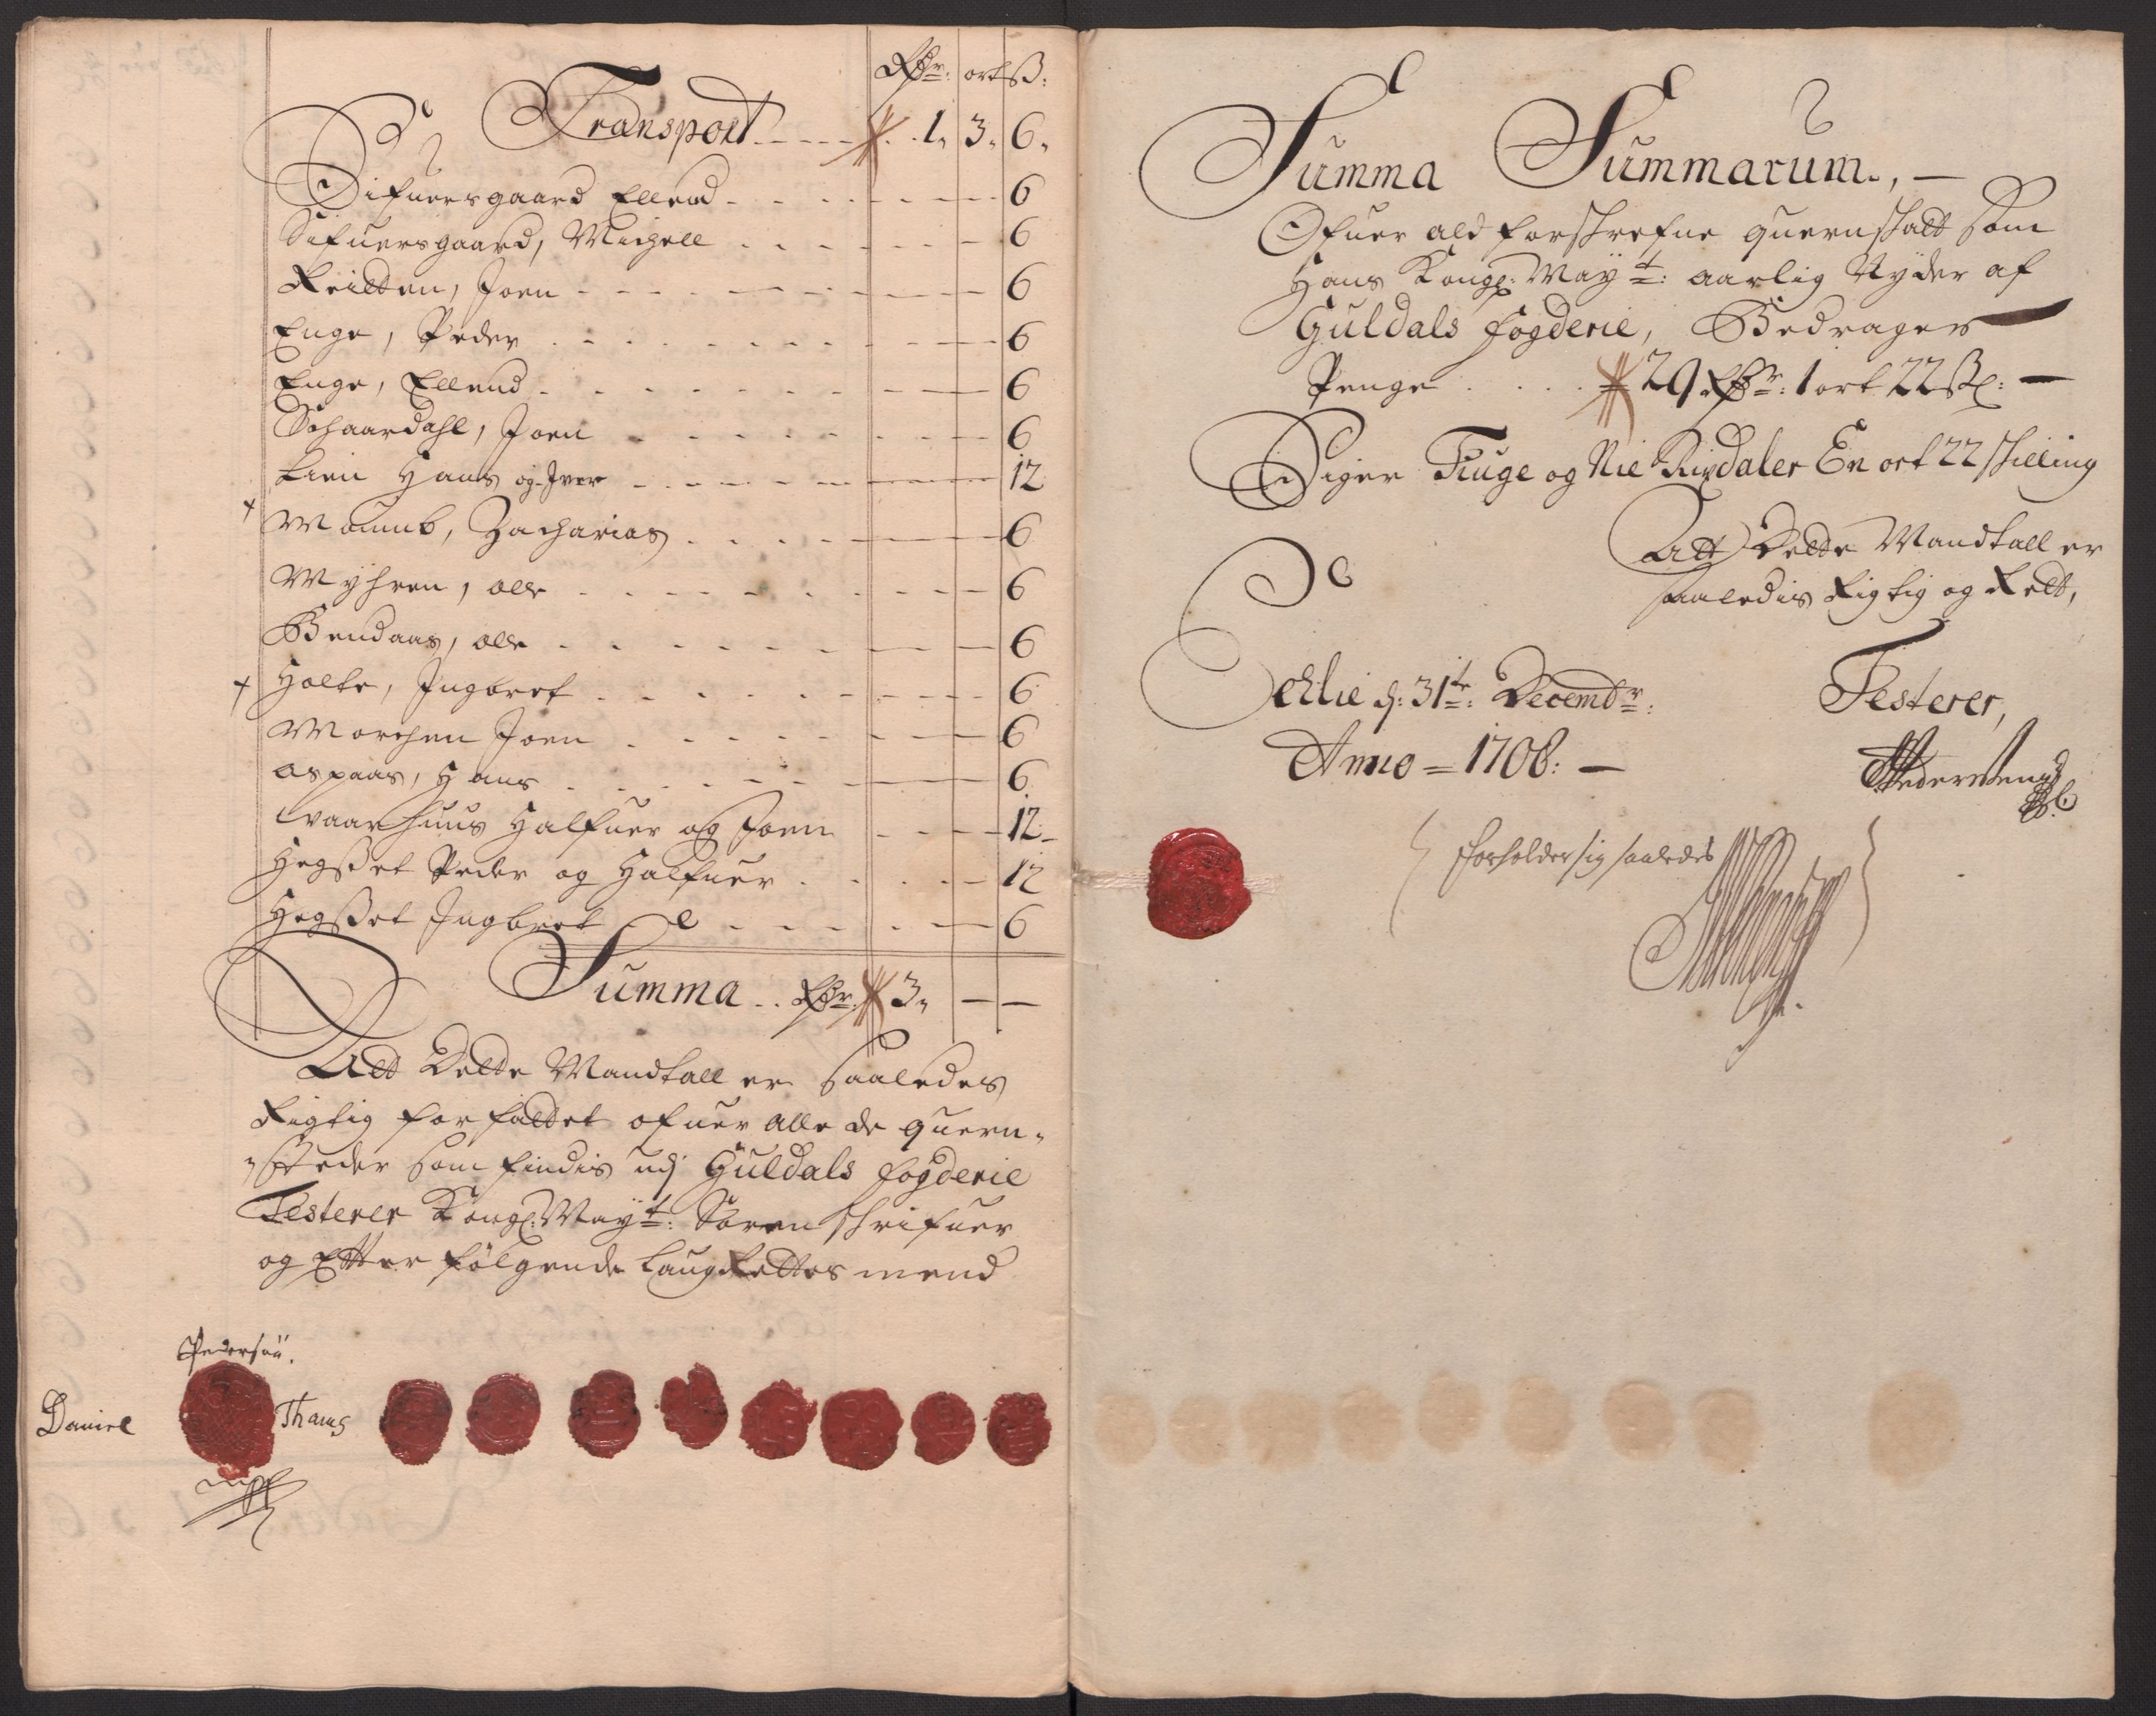 Rdr: ort ß:
Transport 1„ 3„ 6„
Sifuersgaard Ellend 6
Sifuersgaard, Michell 6
Kritten, Joen 6
Enge, Peder 6
Enge, Ellend 6
Schaardahl, Joen 6
Lien Hans og Iver 12
Mounb, Zacharias 6
Myhren, olle 6
Bendaas, olle 6
Holte, Ingbret 6
Morchen Joen 6
Aspaas, Hans 6
Waarhuus Halfuer og Joen 12
Hegset Peder og Halfuer 12
Hegset Ingbret 6
Summa Rdr 3„ — —
Att Dette Mandtall er saaledes
Rigtig forfattet ofuer alle de quern-
steder som findis udj Guldals fogderie
Testerer Kongl: Mayt: Sorenschrifuer
og Efter følgende Laug Rettes mend
Pedersøn.
Daniel Thams
mpp
Summa Summarum., —
Ofuer ald forskrefne quernskatt som
Hans Kongl: Mayt: aarlig Nyder af
Guldals fogderie, Bedrager
Penge 29 Rdr: 1 ort 22 ß: —
Siger Tiuge og Nie Rixdaler En ort 22 skilling
Att Dette Mandtall er
saaledis Rigtig og Rett,
d: 31te: Decembr:
Testerer,
Anno = 1708: —
forholder sig saaledes